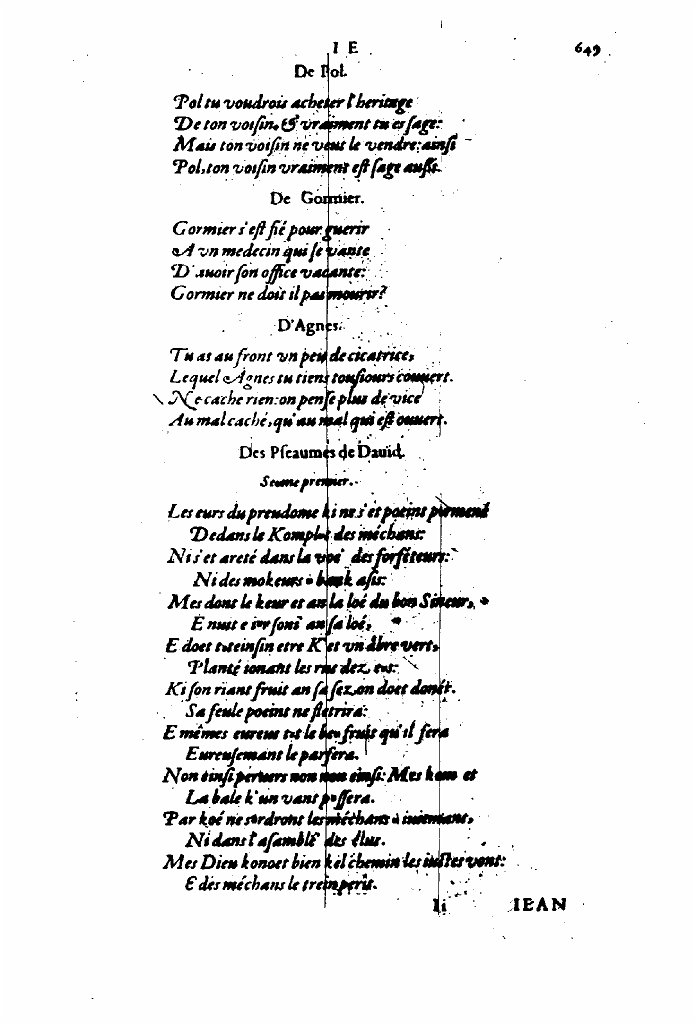 I E 649
De Pol.
Pol tu voudrois acheter l'heritage
De ton voisin, & vraiment tu es sage:
Mais ton voisin ne veut le vendre: ainsi
Pol, ton voisin vraiment est sage aussi.
De Gormier.
Gormier s'est fié pour guerir
A vn medecin qui se vante
D'auoir son office vacante:
Gormier ne doit il pas mourir?
D'Agnes.
Tu as au front vn peu de cicatrice,
Lequel Agnes tu tiens tousiours couuert.
Ne cache rien: on pense plus de vice
Au mal caché, qu'au mal qui est ouuert.
Des Pseaumes de Dauid.
Seaume premier.
Les eurs du preudome ki ne s'et poeint
Dedans le Komplot des méchans:
Ni s'et areté dans la voe des forféteurs:
Ni des mokeurs bank asis:
Mes dont le keur et an la loé du bon Sineur,
E nuit e iour an sa loé,
E doet einsin etre K'et vn abre vert,
Planté ionant les rus dez eus:
Ki son riant fruit an sa sezon doet donét.
Sa feule poeint ne fletrira:
E mêmes eureus tot le beu fruit qu'il fera
Eureusemant le parfera.
Non einsi peruers non non einsi: Mes kom et
La bale k'un vant possera.
Par koé ne sordront les méchans
Ni dans l'asamblé des élus.
Mes Dieu konoet bien kel chemin les iustes vont:
E dès méchans le trein perit.
Ii IEAN